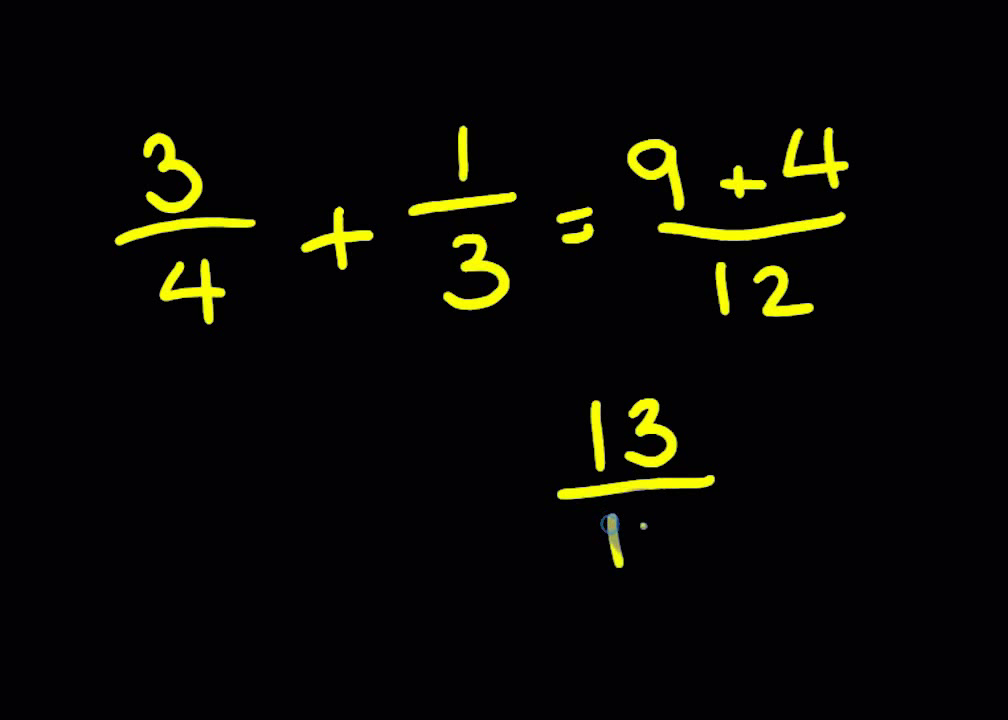 3/4 + 1/3 = 9 + 4/12
13/1